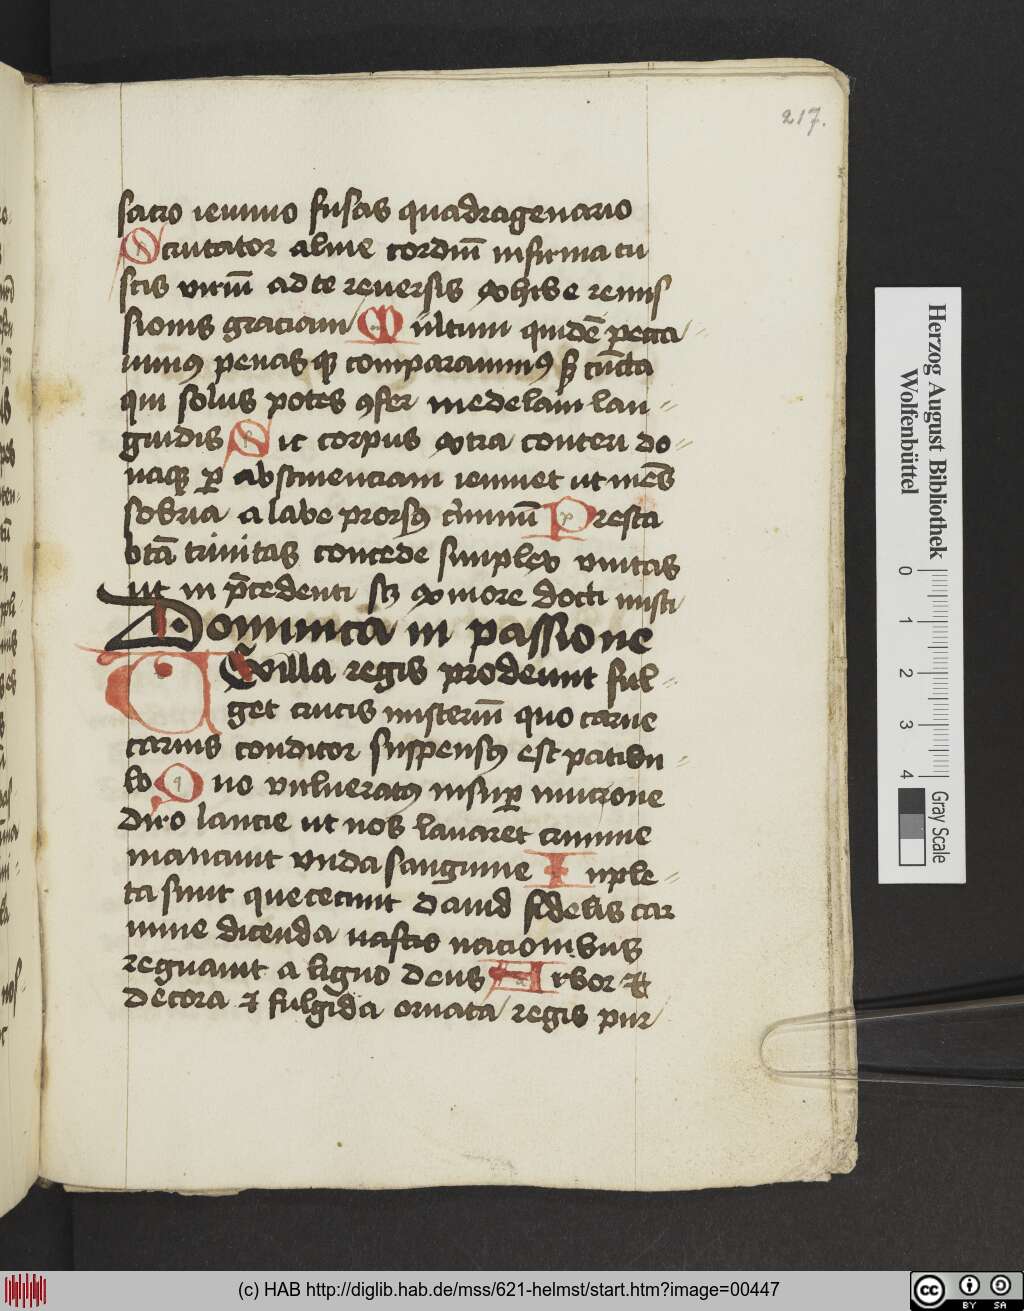 217.
sacro ieiunio fusas quadragenario
Scrutator alme cordiū infirma tu
scis viriū ad te reuersis exhibe remis
sionis graciam Multum quidē pecca
uimus penas qꝫ comparauimus sꝫ cūcta
qui solus potes ꝯfer medelam lan=
guidis Sic corpus extra conteri do=
naqꝫ ꝑ abstinenciam ieiunet ut mēs
sobria a labe prorsus cͥminū Presta
btā trinitas concede simplex vnitas
ut in p̄cedenti sꝫ ex more docti misti
Dominica in passione
Vexilla regis prodeunt ful=
get crucis misteriū quo carne
carnis conditor suspensus est patibu=
lo Quo vulneratus insuꝑ mucrone
diro lancie ut nos lauaret crimine
manauit vnda sanguine Inple=
ta sunt que cecinit dauid fidelis car
mine dicenda nasctis nacionibus
regnauit a ligno deus Arbor et
decora et fulgida ornata regis pur
Herzog August Bibliothek
Wolfenbüttel
0 1 2 3 4
Gray Scale
(c) HAB http://diglib.hab.de/mss/621-helmst/start.htm?image=00447
cc BY SA